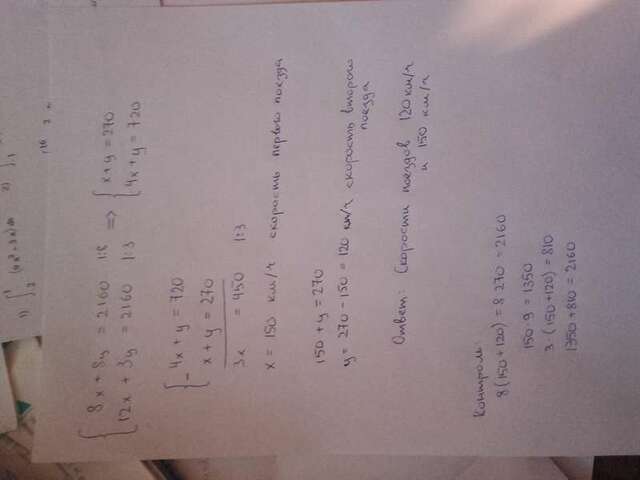 1) ∫₂¹ (6x²+3x)dx 2) ∫₁
8x + 8y = 2160 | :8 ⟹ x + y = 270
12x + 3y = 2160 | :3 4x + y = 720
- 4x + y = 720
x + y = 270
3x = 450 | :3
x = 150 км/ч скорость первого поезда
150 + y = 270
y = 270 - 150 = 120 км/ч скорость второго
поезда
Ответ: Скорости поездов 120 км/ч
и 150 км/ч
Контроль:
8(150 + 120) = 8·270 = 2160
150·9 = 1350
3·(150+120) = 810
1350 + 810 = 2160